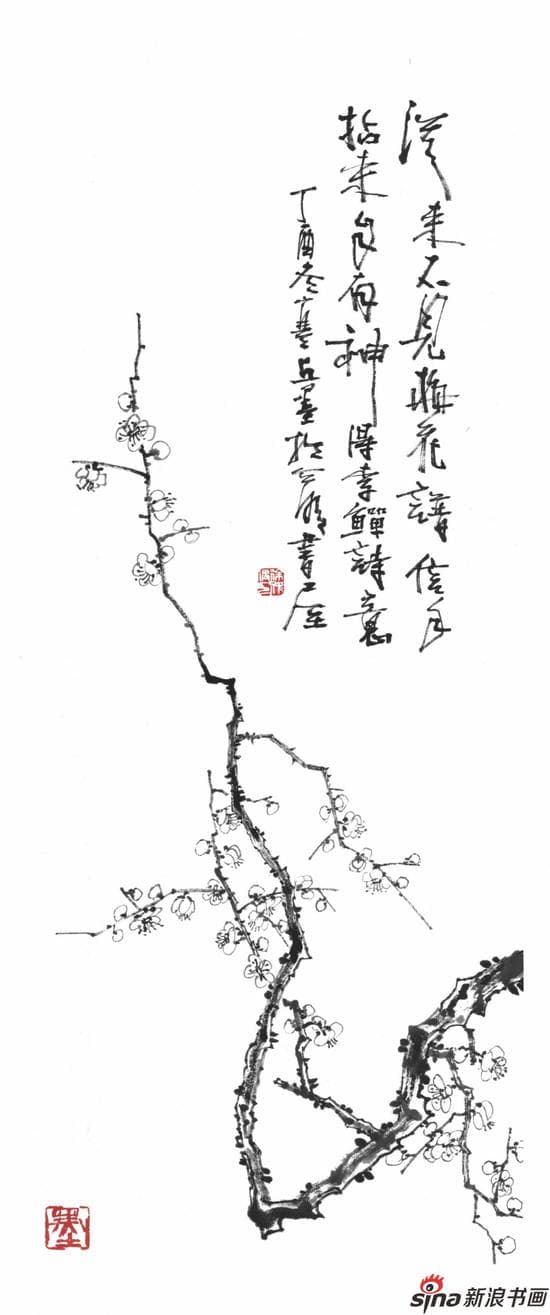 從来不見梅花譜信手
拈来自有神 得李鱓詩意
丁酉冬墨於書屋
sina新浪书画